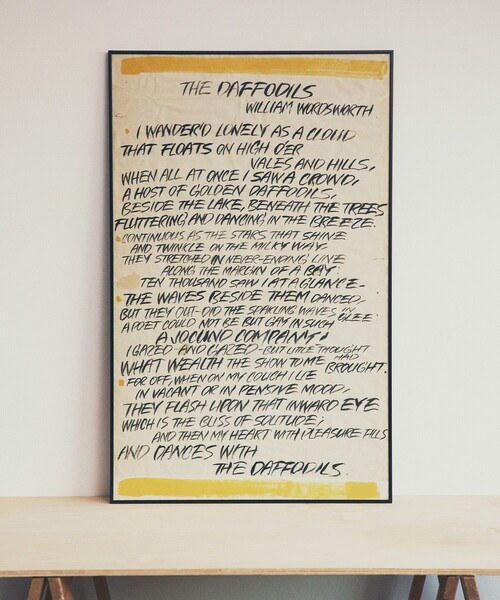 THE DAFFODILS
WILLIAM WORDSWORTH
I WANDER'D LONELY AS A CLOUD
THAT FLOATS ON HIGH O'ER
VALES AND HILLS,
WHEN ALL AT ONCE I SAW A CROWD,
A HOST OF GOLDEN DAFFODILS,
BESIDE THE LAKE, BENEATH THE TREES
FLUTTERING AND DANCING IN THE BREEZE.
CONTINUOUS AS THE STARS THAT SHINE
AND TWINKLE ON THE MILKY WAY.
THEY STRETCHED IN NEVER-ENDING LINE
ALONG THE MARGIN OF A BAY:
TEN THOUSAND SAW I AT A GLANCE-
THE WAVES BESIDE THEM DANCED,
BUT THEY OUT-DID THE SPARKLING WAVES IN GLEE:
A POET COULD NOT BE BUT GAY IN SUCH
A JOCUND COMPANY!
I GAZED-AND GAZED-BUT LITTLE THOUGHT
WHAT WEALTH THE SHOW TO ME HAD BROUGHT.
FOR OFF, WHEN ON MY COUCH I LIE
IN VACANT OR IN PENSIVE MOOD,
THEY FLASH UPON THAT INWARD EYE
WHICH IS THE BLISS OF SOLITUDE;
AND THEN MY HEART WITH PLEASURE FILLS
AND DANCES WITH
THE DAFFODILS.